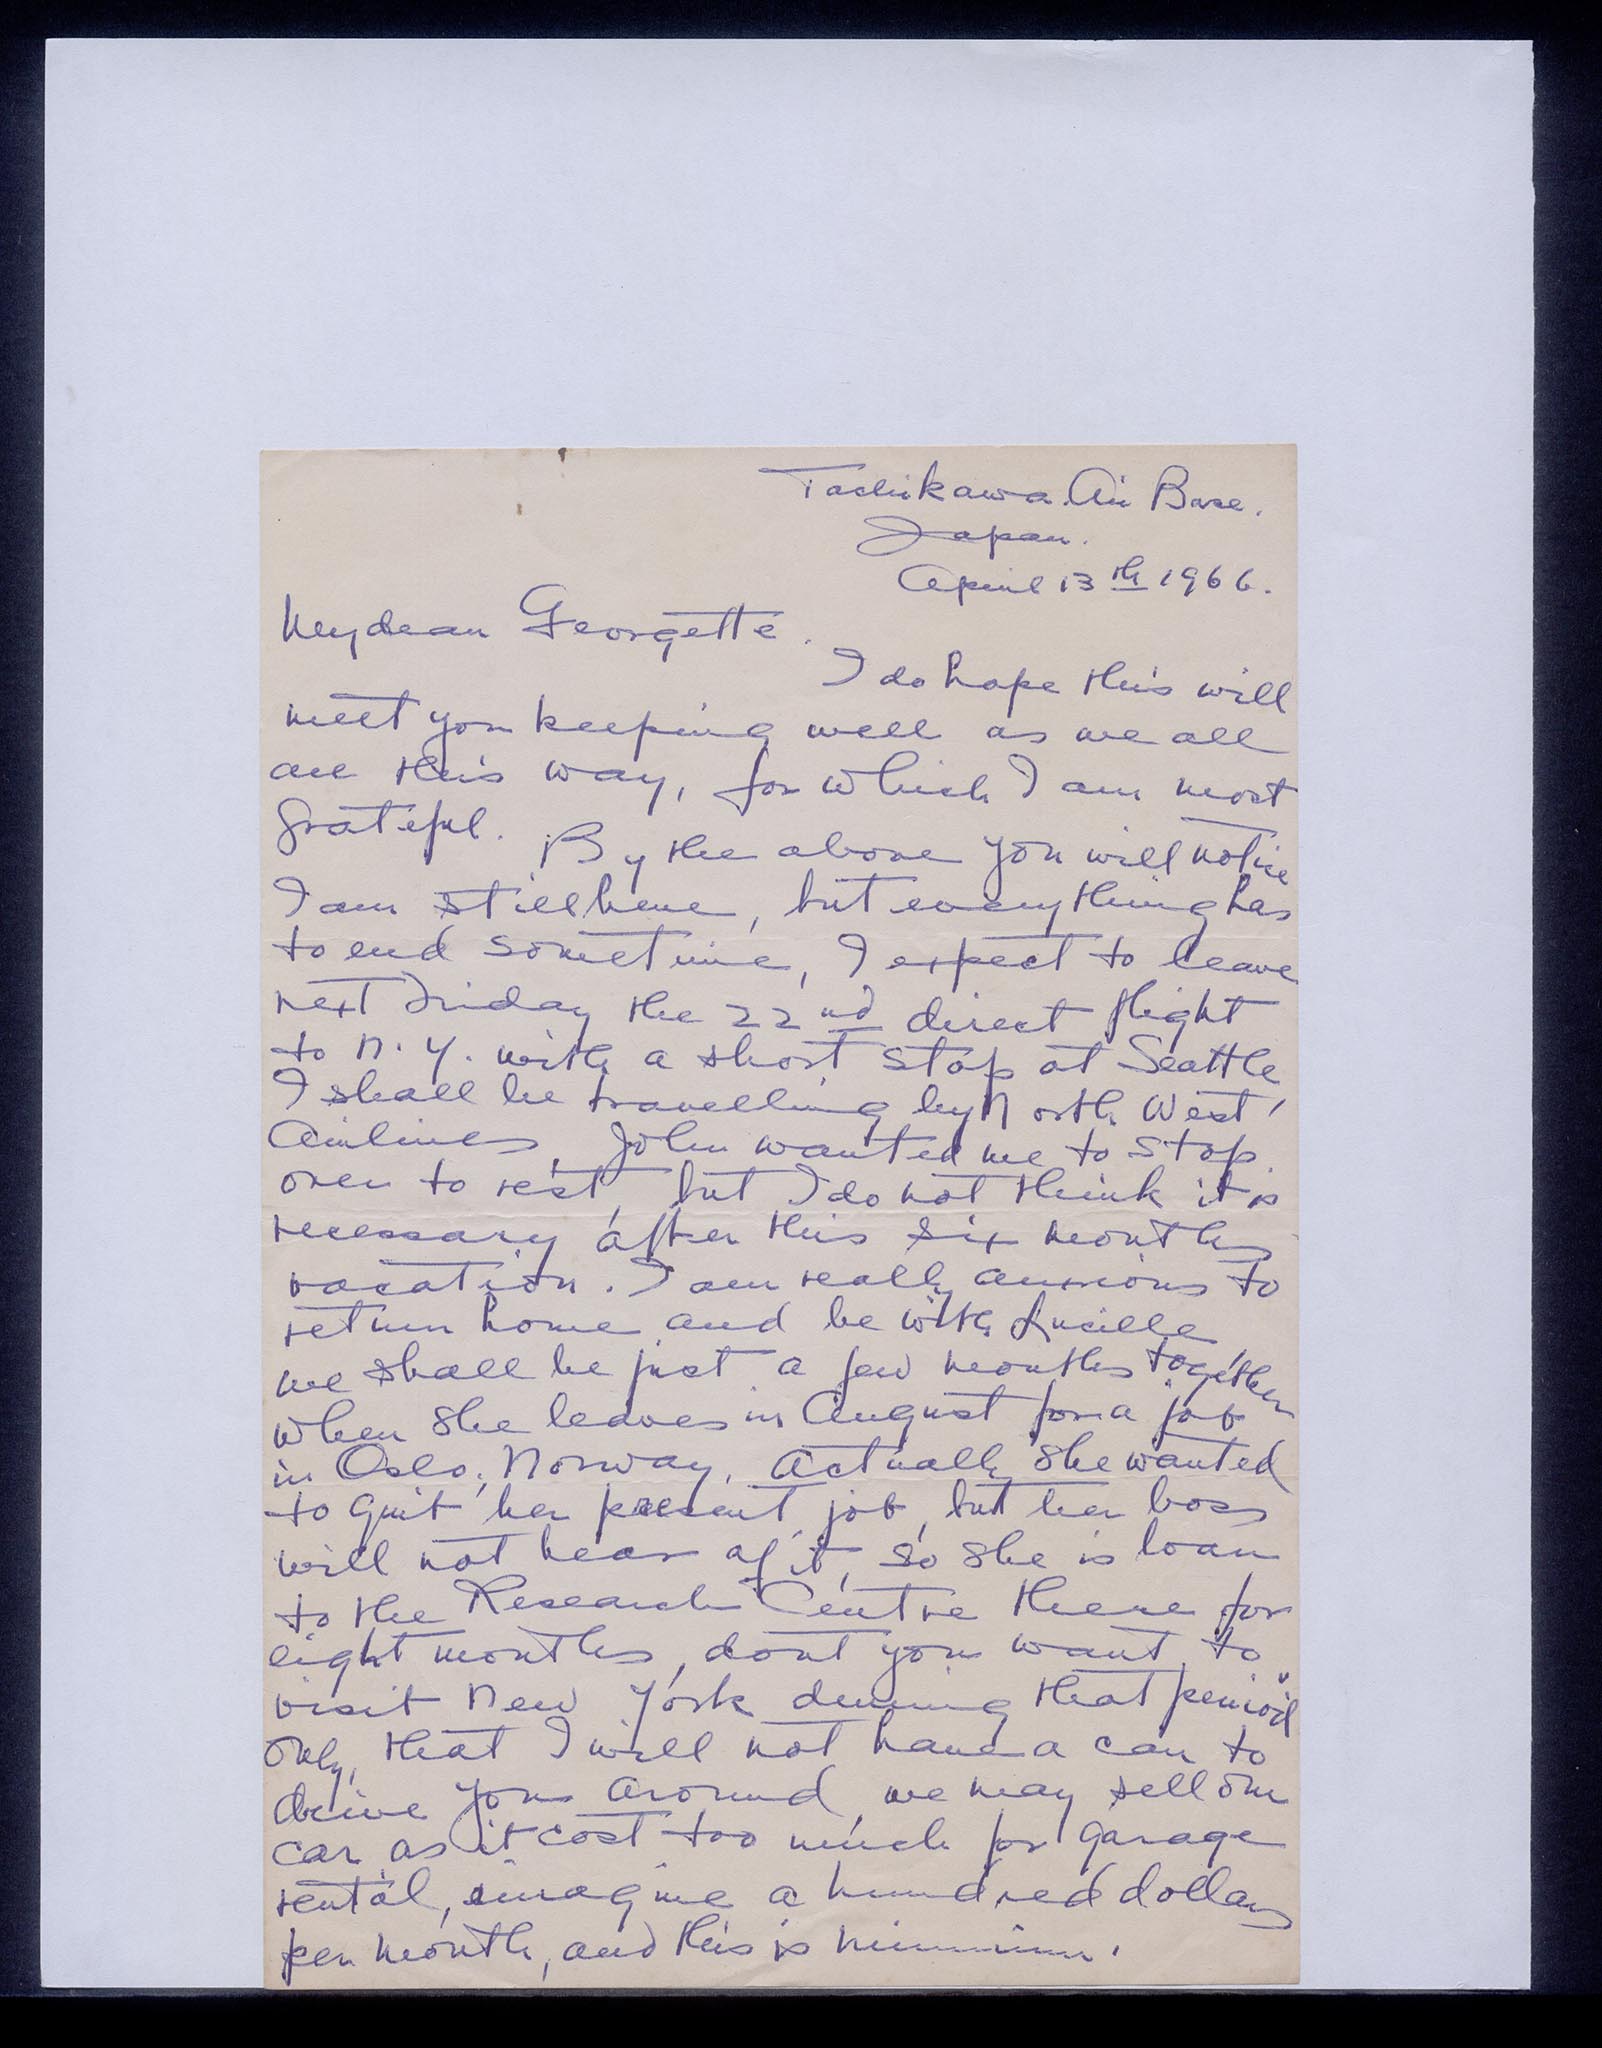 Tachikawa Air Base.
Japan.
April 13th 1966.
My dear Georgette.
I do hope this will
meet you keeping well as we all
are this way, for which I am most
grateful. By the above you will notice
I am still here, but everything has
to end sometime, I expect to leave
next Friday the 22nd direct flight
to N. Y. with a short stop at Seattle,
I shall be travelling by North West
Airlines, John wanted me to stop
over to rest, but I do not think it is
necessary after this six months
vacation. I am really anxious to
return home and be with Lucille
we shall be just a few months together
when she leaves in August for a job
in Oslo, Norway. Actually she wanted
to quit her present job, but her boss
will not hear of it, so she is loan
to the Research Centre there for
eight months, dont you want to
visit New York during that period
only, that I will not have a car to
drive you around, we may sell our
car as it cost too much for garage
rental, imagine a hundred dollars
per month, and this is minimum.